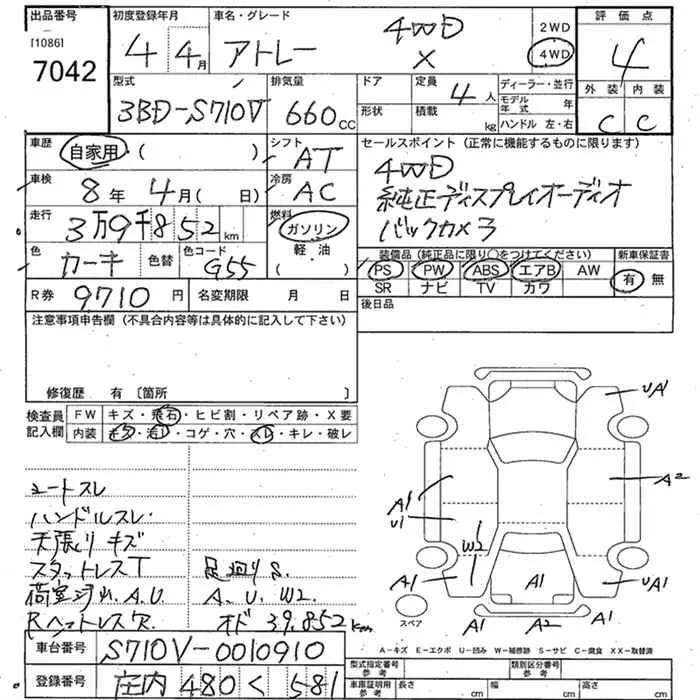 出品番号 初度登録年月 車名・グレード 評価点
[1086] 4 4月 アトレー 4WD X 2WD 4WD 4
7042
型式 排気量 ドア 定員 ディーラー・並行 外装 内装
3BD-S710V 660cc 4人 モデル年式 年 C C
形状 積載 kg ハンドル 左・右
車歴 自家用 ( ) シフト AT セールスポイント (正常に機能するものに限ります)
車検 8年 4月 ( 日) 冷房 AC 4WD
純正ディスプレイオーディオ
走行 3万9千852km 燃料 ガソリン 軽・油 ( ) バックカメラ
色 カーキ 色替 色コード G55 装備品 (純正品に限り○をつけてください) 新車保証書
PS PW ABS エアB AW 有 無
SR ナビ TV カワ
R券 9710円 名変期限 月 日 後日品
注意事項申告欄 (不具合内容等は具体的に記入して下さい)
修復歴 有 [箇所 ]
検査員 FW キズ・飛石・ヒビ割・リペア跡・X要
記入欄 内装 キズ・汚レ・コゲ・穴・スレ・キレ・破レ
シートスレ
ハンドルスレ
天張りキズ
スタットレスT 足廻りS.
荷室汚れ.A.U A、U、W2
Rヘットレス欠 オド 39,852km
UA1
A1 A2
U1
W2
A1 A1 UA1
スペア A1 A2 A1
A-キズ E-エクボ U-凹み W-補修跡 S-サビ C-腐食 XX-取替済
車台番号 S710V-0010910
型式指定番号 参考 類別区分番号 参考
登録番号 庄内 480 く 581
車庫証明用 参考 長さ cm 幅 cm 高さ cm